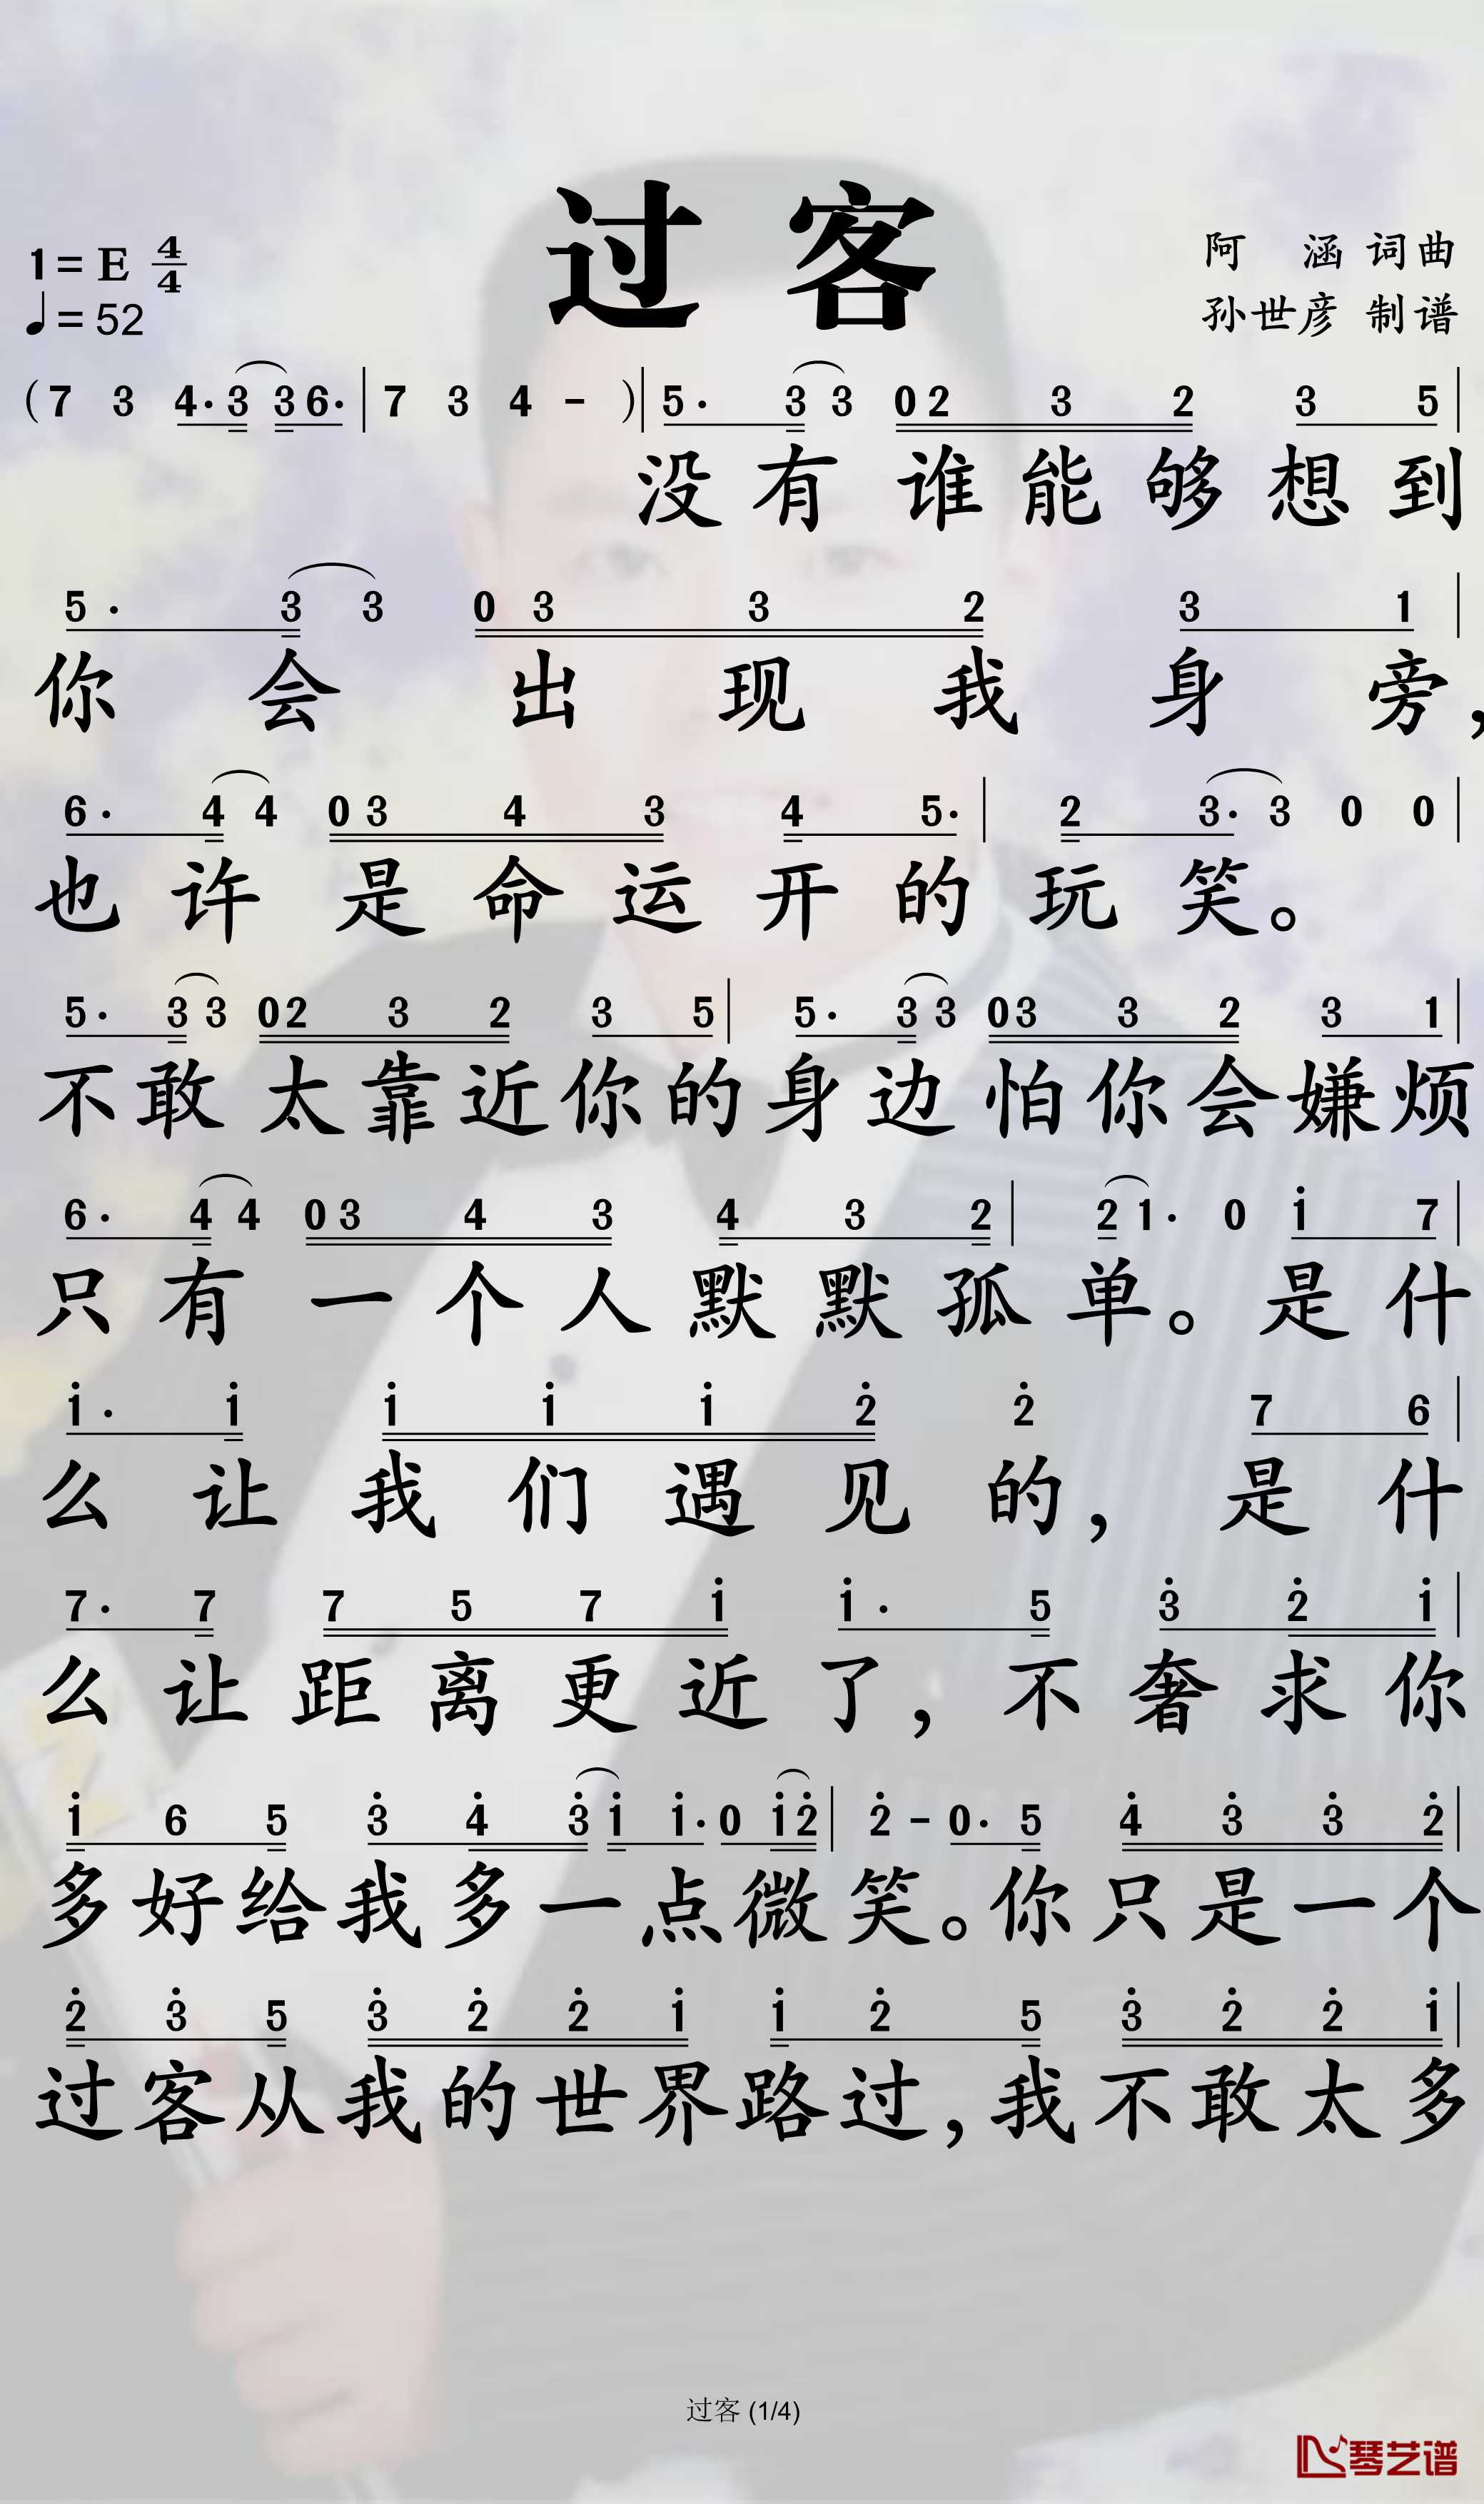 过客
1=E 4/4
♩=52
阿 涵 词曲
孙世彦 制谱
(7 3 4·3 3 6·|7 3 4 - )|5· 3 3 0 2 3 2 3 5|
没有谁能够想到
5· 3 3 0 3 3 2 3 1|
你会出现我身旁，
6· 4 4 0 3 4 3 4 5·|2 3· 3 0 0|
也许是命运开的玩笑。
5· 3 3 0 2 3 2 3 5|5· 3 3 0 3 3 2 3 1|
不敢太靠近你的身边怕你会嫌烦
6· 4 4 0 3 4 3 4 3 2|2 1· 0 i 7|
只有一个人默默孤单。是什
i· i i i i 2̇ 2̇ 7 6|
么让我们遇见的，是什
7· 7 7 5 7 i i· 5 3̇ 2̇ i|
么让距离更近了，不奢求你
i 6 5 3̇ 4̇ 3̇ i i· 0 i 2̇|2̇ - 0· 5 4̇ 3̇ 3̇ 2̇|
多好给我多一点微笑。你只是一个
2̇ 3̇ 5 3̇ 2̇ 2̇ i i 2̇ 5 3̇ 2̇ 2̇ i|
过客从我的世界路过，我不敢太多
过客 (1/4)
琴艺谱